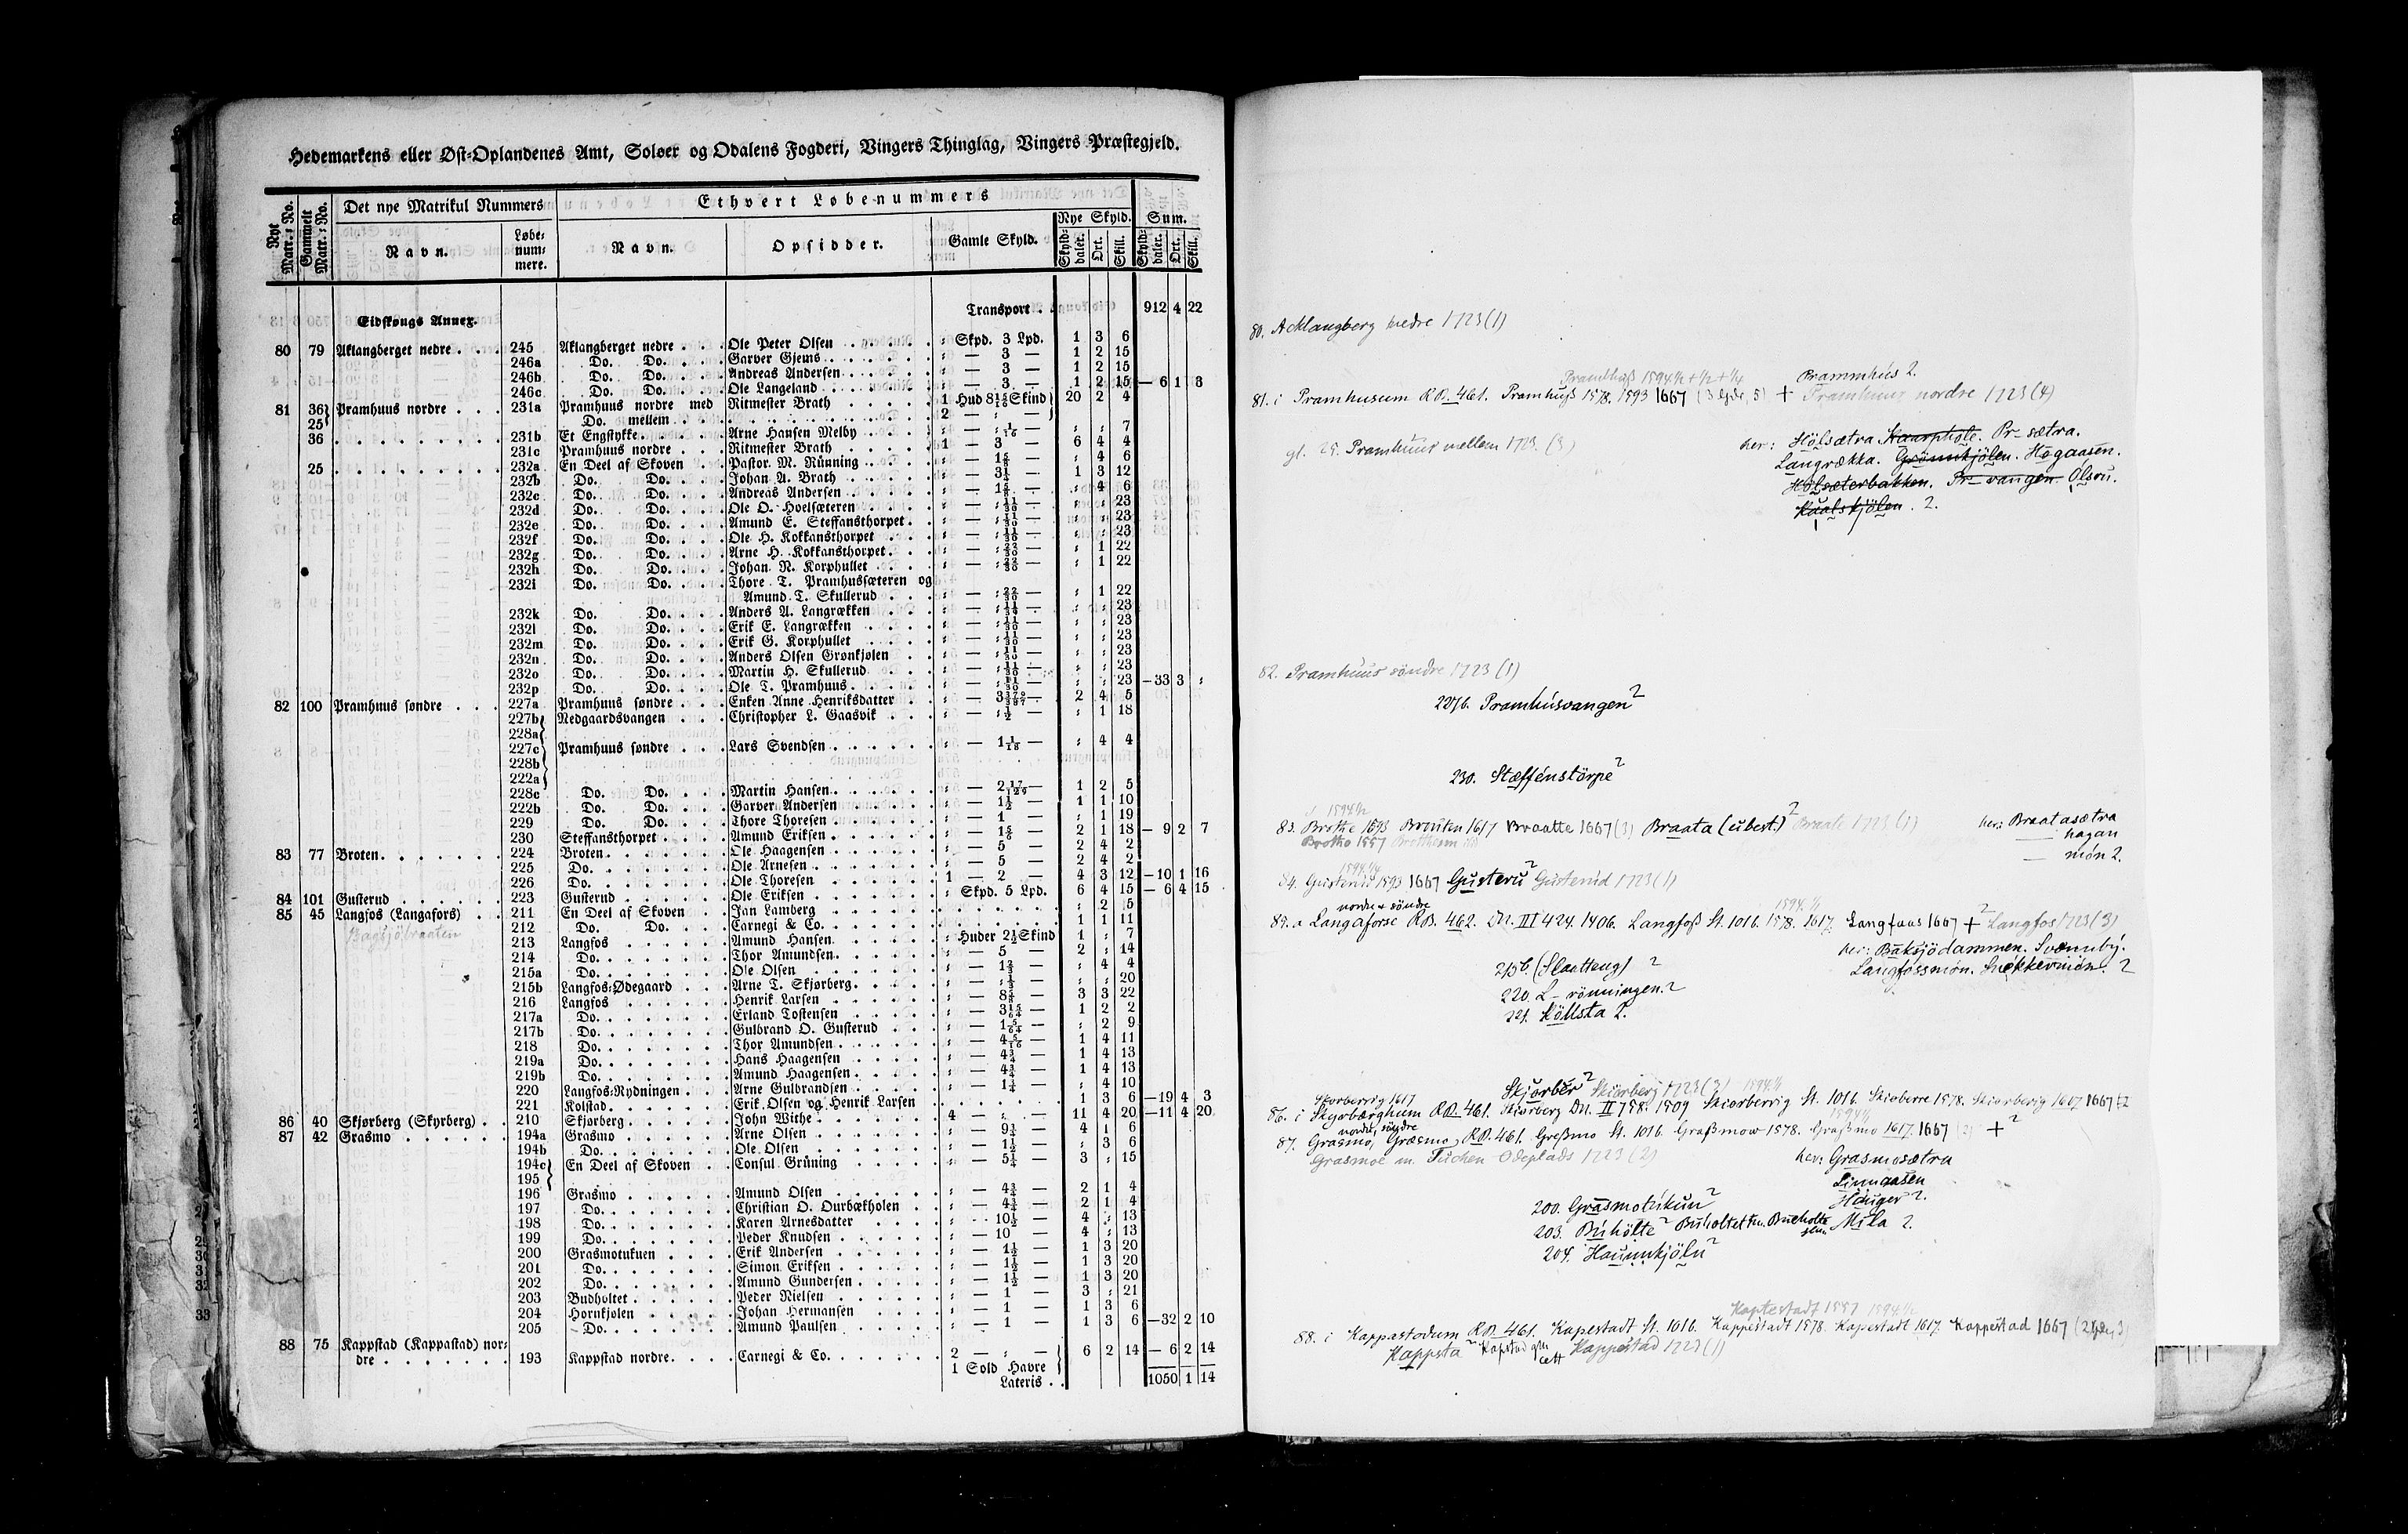 Hedemarkens eller Øst-Oplandenes Amt, Soløer og Odalens Fogderi, Vingers Thinglag, Vingers Præstegjeld.
Nyt Matr.-No. | Gammelt Matr.-No. | Det nye Matrikul Nummers | Ethvert Løbenummers
Navn. | Løbe-num-mere. | Navn. | Opsidder. | Gamle Skyld. | Nye Skyld. | Sum.
Skyld-daler. | Ort. | Skill. | Skyld-daler. | Ort. | Skill.
Transport . 912 4 22
Eidskougs Annex.
80 79 Aklangberget nedre . . . 245 Aklangberget nedre . . . Ole Peter Olsen . . . . . . : Skpd. 3 Lpd. 1 3 6
246a Do. Do. . . . Garver Gjems . . . . . . : — 3 — 1 2 15
246b Do. Do. . . . Andreas Andersen . . . . . : — 3 — 1 2 15
246c Do. Do. . . . Ole Langeland . . . . . . : — 3 — 1 2 15 — 6 1 3
81 36 Pramhuus nordre . . . 231a Pramhuus nordre med Ritmester Brath . . . . . 1 Hud Skind 20 2 4
25 Do. mellem . . . 2 — : —
36 . . . . . . . . . 231b Et Engstykke . . . . Arne Hansen Melby . . . . : — 1/16 — : : 7
231c Pramhuus nordre . . . Ritmester Brath . . . . . 1 — 3 — 6 4 4
25 . . . . . . . . . 232a En Deel af Skoven . . Pastor M. Nünning . . . . : — — : 4 6
232b Do. Do. . . . Johan A. Brath . . . . . : — 3¼ — 1 3 12
232c Do. Do. . . . Andreas Andersen . . . . . : — — : 4 6
232d Do. Do. . . . Ole O. Hoelsæteren . . . . : — 11/30 — : : 23
232e Do. Do. . . . Amund E. Steffansthorpet . . : — 11/30 — : : 23
232f Do. Do. . . . Ole H. Kokkansthorpet . . . : — 11/30 — : : 23
232g Do. Do. . . . Arne H. Kokkansthorpet . . . : — 22/30 — : 1 22
232h Do. Do. . . . Johan N. Korphullet . . . . : — 22/30 — : 1 22
232i Do. Do. . . . Thore T. Pramhussæteren og
Amund T. Skullerud . . . : — 22/30 — : 1 22
232k Do. Do. . . . Anders A. Langrækken . . . : — 11/30 — : : 23
232l Do. Do. . . . Erik E. Langrækken . . . . : — 11/30 — : : 23
232m Do. Do. . . . Erik G. Korphullet . . . . : — 11/30 — : : 23
232n Do. Do. . . . Anders Olsen Grønkjølen . . : — 11/30 — : : 23
232o Do. Do. . . . Martin H. Skullerud . . . : — 11/30 — : : 23
232p Do. Do. . . . Ole T. Pramhuus . . . . . : — 11/30 — : : 23 — 33 3 :
82 100 Pramhuus søndre . . . 227a Pramhuus søndre . . . Enken Anne Henriksdatter . . : — — 2 4 5
227b Nedgaardsvangen . . . Christopher L. Gaasvik . . . : — ½ — : 1 18
228a
227c Pramhuus søndre . . . Lars Svendsen . . . . . . : — 1 1/18 — : 4 4
228b
222a
228c Do. Do. . . . Martin Hansen . . . . . . : — — 1 2 5
222b Do. Do. . . . Garver Andersen . . . . . : — 1½ — 1 1 10
229 Do. Do. . . . Thore Thoresen . . . . . : — 1 — : 1 19
230 Steffansthorpet . . . . Amund Eriksen . . . . . . : — 1 5/6 — 2 1 18 — 9 2 7
83 77 Broten . . . . . . . 224 Broten . . . . . . . Ole Haagensen . . . . . . : — 5 — 2 4 2
225 Do. . . . . . . . Ole Arnesen . . . . . . . : — 5 — 2 4 2
226 Do. . . . . . . . Ole Thoresen . . . . . . 1 — 2 — 4 3 12 — 10 1 16
84 101 Gusterud . . . . . . 223 Gusterud . . . . . . Ole Eriksen . . . . . . . : Skpd. 5 Lpd. 6 4 15 — 6 4 15
85 45 Langfos (Langafors) . . 211 En Deel af Skoven . . Jan Lamberg . . . . . . . : 2 5
212 Do. Do. . . . Carnegi & Co. . . . . . . 1 1 11
213 Langfos . . . . . . Amund Hansen . . . . . . : Huder 2½ Skind 1 : 7
Bagsjöbraaten
214 Do. . . . . . . . Thor Amundsen . . . . . . : — 5 — 2 : 14
215a Do. . . . . . . . Ole Olsen . . . . . . . : — 1⅔ — : 4 4
215b Langfos-Ødegaard . . . Arne T. Skjørberg . . . . . : — ⅓ — : : 20
216 Langfos . . . . . . Henrik Larsen . . . . . . : — — 3 3 22
217a Do. . . . . . . . Erland Tostensen . . . . . : — 3 15/64 — 1 2 2
217b Do. . . . . . . . Gulbrand O. Gusterud . . . : — 1 5/64 — : 2 9
218 Do. . . . . . . . Thor Amundsen . . . . . . : — 4 5/16 — 1 4 11
219a Do. . . . . . . . Hans Haagensen . . . . . : — 4¾ — 1 4 13
219b Do. . . . . . . . Amund Haagensen . . . . . : — 4¾ — 1 4 13
220 Langfos-Rydningen . . . Arne Gulbrandsen . . . . . : — 1¼ — : 4 10
221 Kolstad . . . . . . Erik Olsen og Henrik Larsen . . . 1 3 6 — 19 4 3
86 40 Skjørberg (Skyrberg) . . 210 Skjørberg . . . . . . John Withe . . . . . . . 4 — : — 11 4 20 — 11 4 20
87 42 Grasmo . . . . . . 194a Grasmo . . . . . . Arne Olsen . . . . . . . : — 9½ — 4 1 6
194b Do. . . . . . . . Ole Olsen . . . . . . . : — 1½ — : 3 6
194c En Deel af Skoven . . Consul Grüning . . . . . : — 5¼ — 3 : 15
195
196 Grasmo . . . . . . Amund Olsen . . . . . . : — 4¾ — 2 1 4
197 Do. . . . . . . . Christian O. Ourbækholen . . : — 4¾ — 2 1 4
198 Do. . . . . . . . Karen Arnesdatter . . . . : — 10½ — 4 : 13
199 Do. . . . . . . . Peder Knudsen . . . . . . : — 10 — 4 : 13
200 Grasmotukuen . . . . Erik Andersen . . . . . . : — 1½ — 1 3 20
201 Do. . . . . . . . Simon Eriksen . . . . . . : — 1½ — 1 3 20
202 Do. . . . . . . . Amund Gundersen . . . . . : — 1½ — 1 3 20
203 Budholtet . . . . . . Peder Nielsen . . . . . . : — 1 — 3 : 21
204 Hornkjølen . . . . . Johan Hermansen . . . . . : — 1 — 1 3 6
205 Do. . . . . . . . Amund Paulsen . . . . . . : — 1 — 1 3 6 — 32 2 10
88 75 Kappstad (Kappastad) nor-
dre . . . . . . . 193 Kappstad nordre . . . . Carnegi & Co. . . . . . . 2 — : — 6 2 14 — 6 2 14
1 Sold Havre
Lateris . . 1050 1 14
80. Acklangberg nedre 1723 (1)
Pramhuß 1594 ½ + ½ + ¼ Prammhús 2.
81. i Pramhusum RB. 461. Pramhuß 1578. 1593 1667 + Pramhuus nordre 1723 (4)
gl. 25. Pramhuus mellem 1723. (3)
her: Hölsætra Kaarphole. Pr–sætra.
Langrækka. Grönnkjölen. Högaasen.
Hölsæterbakken. Pr–vangen Ölsru.
Kaalskjölen. 2.
82. Pramhuus söndre 1723 (1)
227b. Pramhúsvangen 2
230. Stæffenstörpe 2
1594 ½
83. Brothe 1593 Brouten 1617 Braatte 1667 (3) Braata (ubest.) 2 Braate 1723 (1) her: Braatasætra
Brotho 1557 hagan
— món 2.
1594 ¼
84. Gusterud 1593 1667 Gusteru 2 Gusterud 1723 (1)
nordre & söndre 1594 ½
85. a Langaforse RB. 462. DN. III 424. 1406. Langfoß St. 1016. 1578. 1617. Langfoos 1667 + 2 Langfos 1723 (3)
her: Baksjödammen. Svennbý.
Langfossmón. Snekkermón. 2
215b. (Slaatteng) 2
220. L– rönningen. 2
221. Köllsta 2.
Skjorbër 2 Skiorberg 1723 (3) 1594 ½
Skorberrig 1617
86. i Skyrbærghum RB. 461. Skiorberg DN. II 758. 1509 Skiorberrig St. 1016. Skioberre 1578. Skiorberig 1607 1667
nordre, söndre 1594 ½
87. Grasmo, Græsmo, RB. 461. Greßmo St. 1016. Graßmow 1578. Graßmo 1617. 1667 (2) + 2
Grasmoe m. Tuchen Ödeplads 1723 (2) her: Grasmosætra
Linnaasen
200. Grasmotúkun 2 Hauger 2.
203. Búhölte 2 Buholtet Mila 2.
204. Haunnkjölu 2
Kaptestadt 1557 1594 ½
88. i Kappastodum RB. 461. Kapestadt St. 1016. Kappestadt 1578. Kapestadt 1617. Kappestad 1667
Kappsta 2 Kappestad 1723 (1)